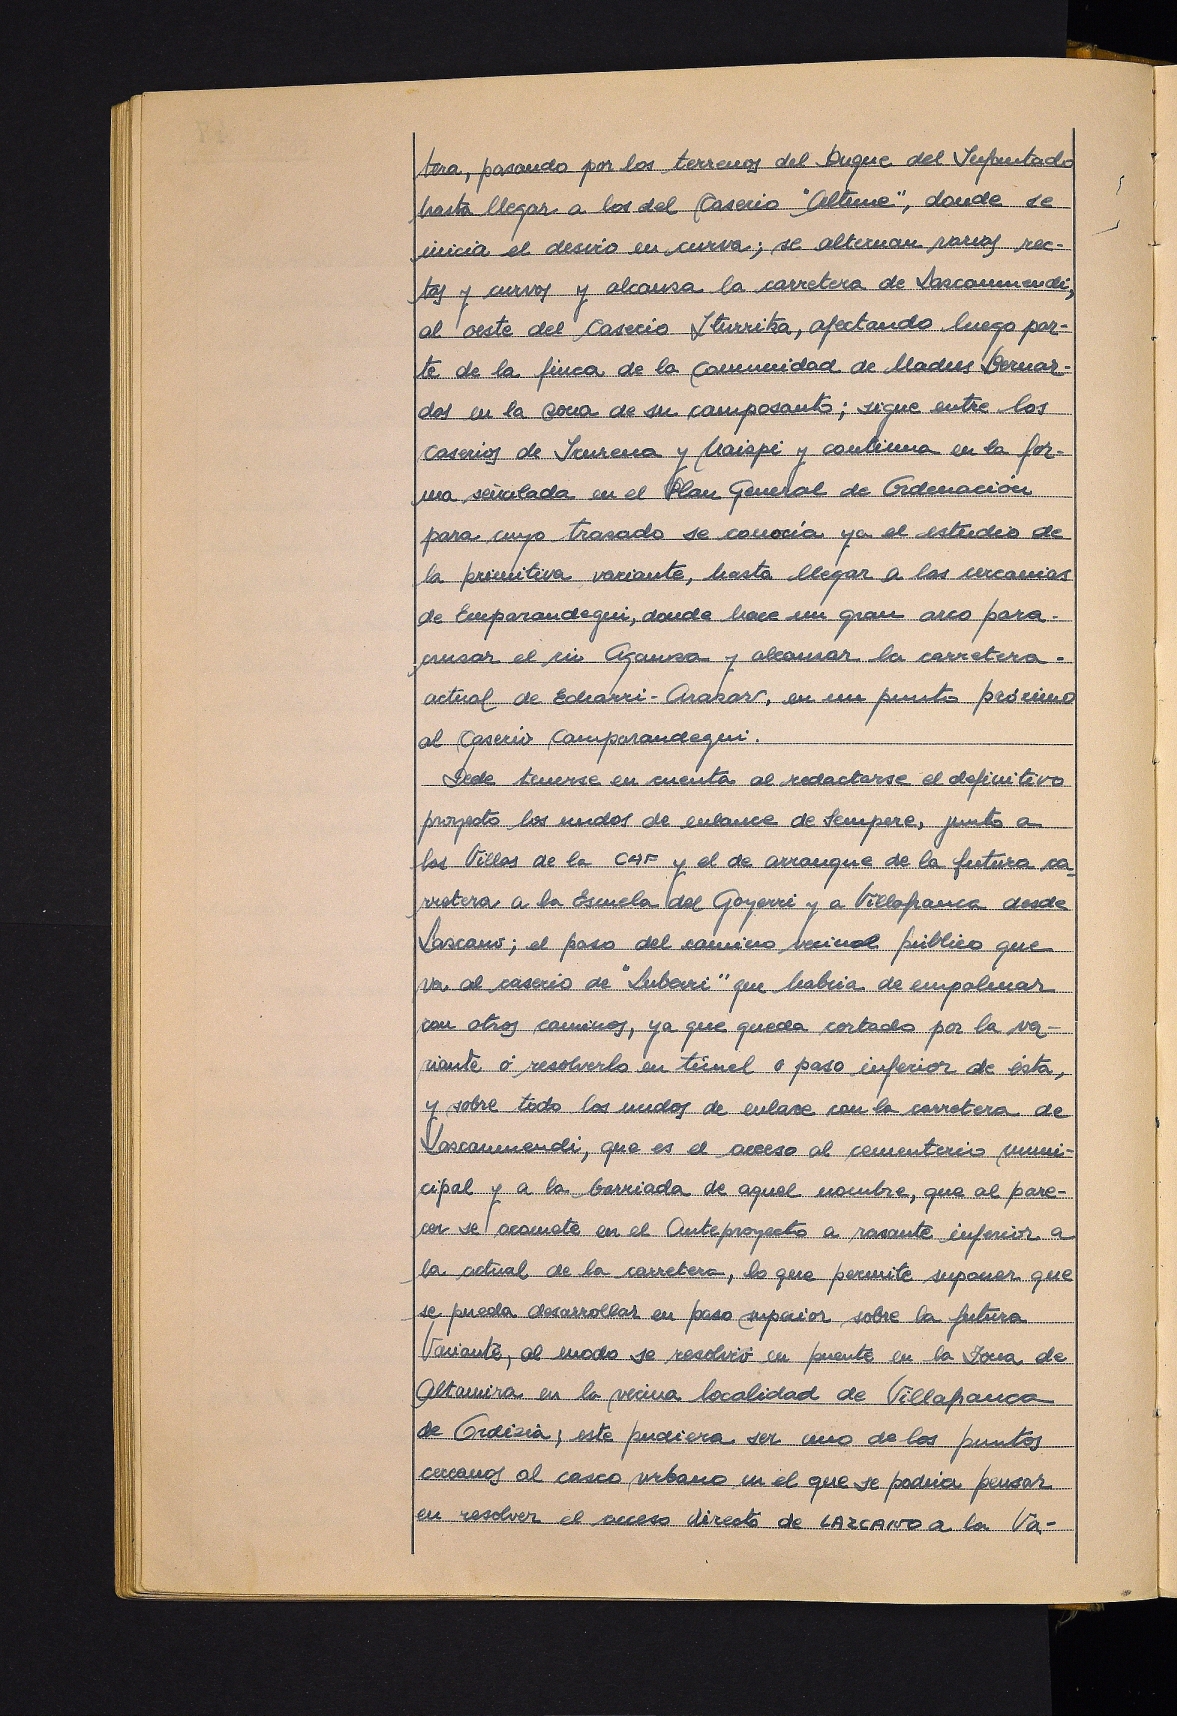 tera, pasando por los terrenos del Duque del Infantado
hasta llegar a los del Caserio "Altune", donde se
inicia el desvio en curva; se alternan varios rec-
tas y curvas y alcanza la carretera de Lascanmendi,
al oeste del Caserio Iturritza, afectando luego par-
te de la finca de la Comunidad de Madres Bernar-
das en la zona de su camposanto; sigue entre los
caserios de y continua en la for-
ma señalada en el Plan General de Ordenación
para cuyo trasado se conocía ya el estudio de
la primitiva variante, hasta llegar a las cercanias
de Emparandegui, donde hace un gran arco para-
cruzar el rio Agaunza y alcanzar la carretera-
actual de Echarri-Aranaz, en un punto próximo
al Caserio Camparandegui.
Debe tenerse en cuenta al redactarse el definitivo
proyecto los nudos de enlance de Sempere, junto a
las Villas de la CAF y el de arranque de la futura ca-
rretera a la Escuela del Goyerri y a Villafranca desde
Lascano; el paso del camino vecinal público que
va al caserio de "Luberri" que habria de empalmar
con otros caminos, ya que queda cortado por la va-
riante ó resolverlo en túnel o paso inferior de ésta,
y sobre todo los nudos de enlace con la carretera de
Lascanmendi, que es el acceso al cementerio muni-
cipal y a la barriada de aquel nombre, que al pare-
cer se acomete en el Anteproyecto a rasante inferior a
la actual de la carretera, lo que permite suponer que
se pueda desarrollar en paso superior sobre la futura
Variante, al modo se resolvió en puente en la Zona de
Altamira en la vecina localidad de Villafranca
de Ordizia; este pudiera ser uno de los puntos
cercanos al casco urbano en el que se podria pensar
en resolver el acceso directo de LAZCANO a la Va-